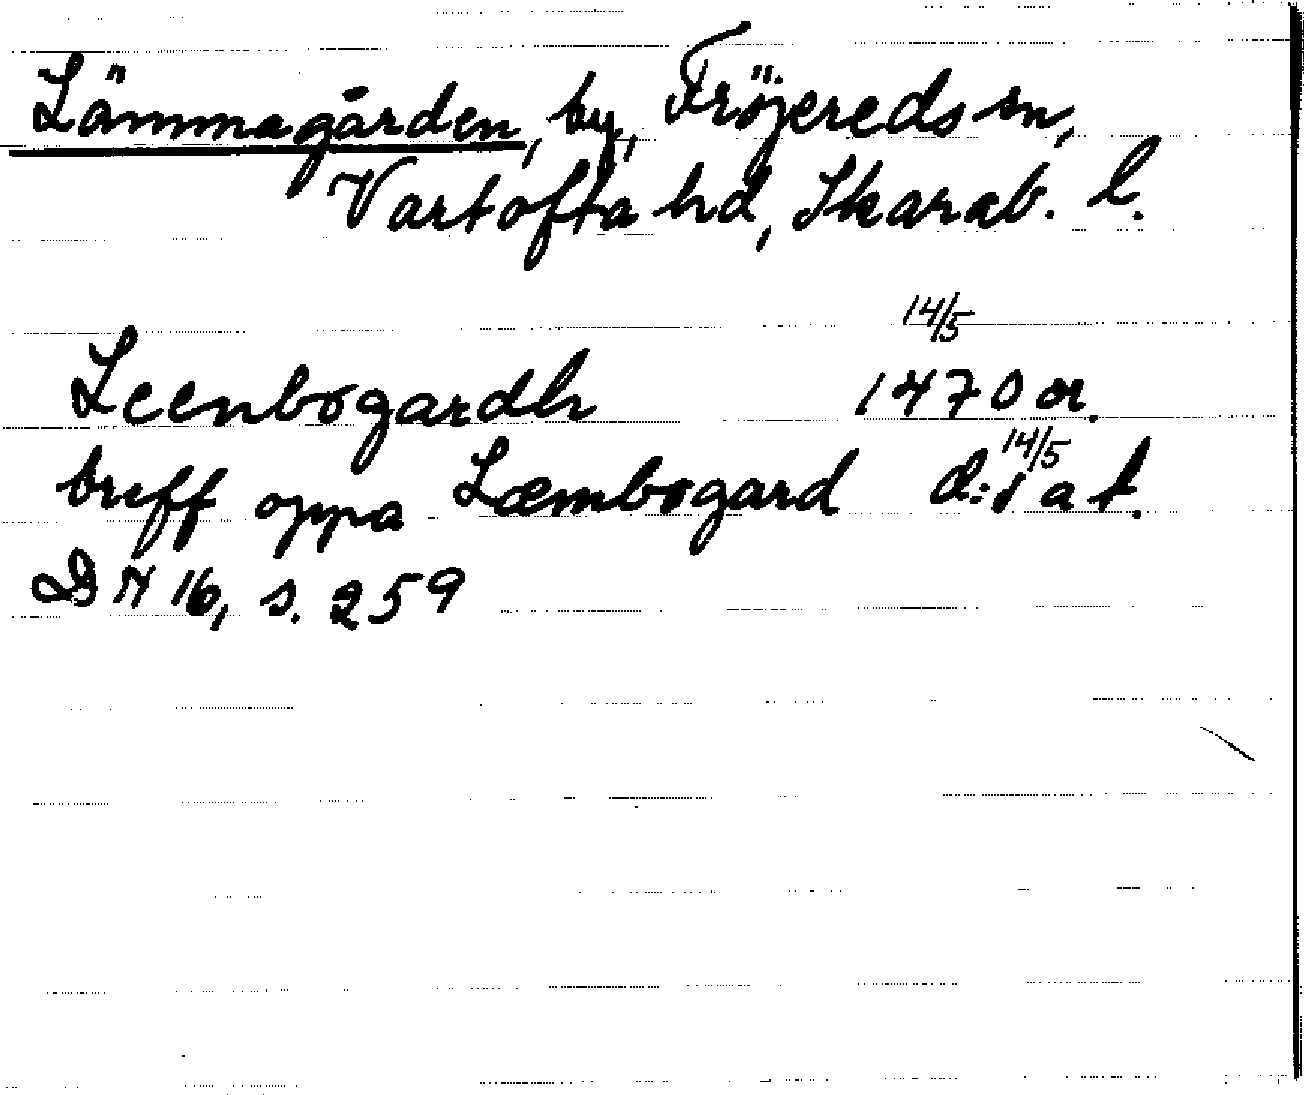 Lämmagården, by, Fröjereds sn,
Vartofta hd, Skarab. l.
14/5
Leenbogardh 1470 or.
14/5
breff oppa Læmbogard d:o a t.
DN 16, s. 259